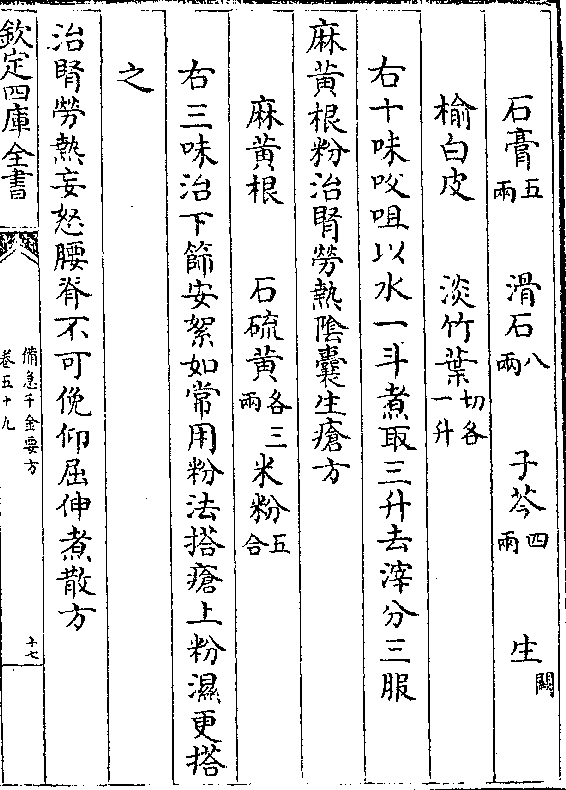 石膏五兩 滑石八兩 子芩四兩 生闕
榆白皮 淡竹葉切各一升
右十味㕮咀以水一斗煮取三升去滓分三服
麻黃根粉治腎勞熱陰囊生瘡方
麻黃根 石硫黃各三兩 米粉五合
右三味治下篩安絮如常用粉法搭瘡上粉濕更搭
之
治腎勞熱妄怒腰脊不可俛仰屈伸煮散方
欽定四庫全書
備急千金要方
卷五十九
十七